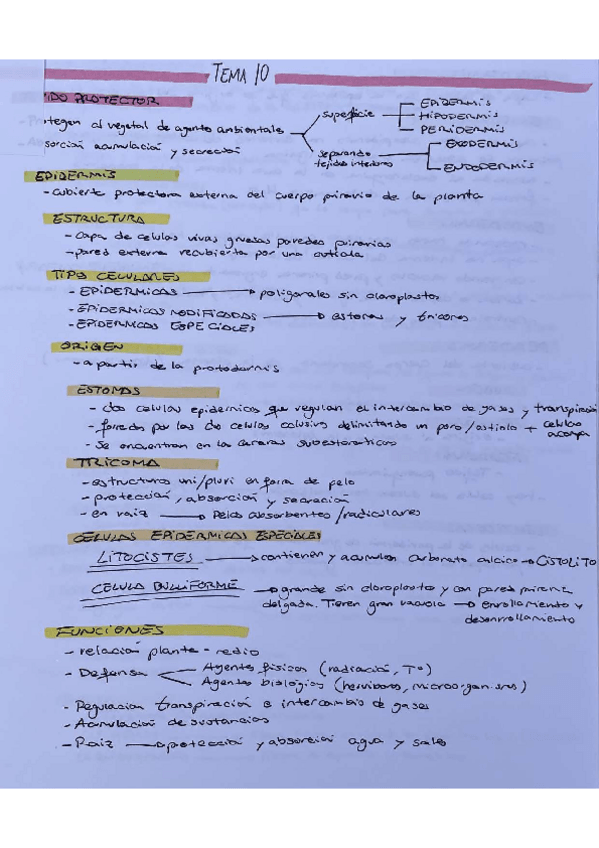 TEMA 10
IDO PROTECTOR
tegen al vegetal de agentes ambientales
sorción acumulación y secreción
superficie
EPIDERMIS
HIPODERMIS
PERIDERMIS
separando tejidos interiores
EXODERMIS
ENDODERMIS
EPIDERMIS
- Cubierta protectora externa del cuerpo primario de la planta
ESTRUCTURA
- Capa de celulas vivas gruesas paredes primarias
- pared externa recubierta por una cuticula
TIPOS CELULARES
- EPIDERMICAS → poligonales sin cloroplastos
- EPIDERMICAS MODIFICADAS → estomas y tricomas
- EPIDERMICAS ESPECIALES
ORIGEN
- a partir de la protodermis
ESTOMAS
- dos celulas epidermicas que regulan el intercambio de gases y transpiración
- formados por las dos celulas oclusivas delimitando un poro/ostiolo + celulas acomp
- Se encuentran en la camaras subestomaticas
TRICOMA
- estructuras uni/pluri en forma de pelo
- protección, absorción y secreción
- en raiz → Pelos absorbentes/radiculares
CELULAS EPIDERMICAS ESPECIALES
LITOCISTES → contienen y acumulan carbonato calcico → CISTOLITO
CELULA BULLIFORME → grande sin cloroplasto y con pared
delgada. Tienen gran vacuola → enrollamiento y
desenrollamiento
FUNCIONES
- relación planta - medio
- Defensa
Agentes físicos (radiación, Tº)
Agentes biológicos (herviboros, microorganismos)
- Regulacion transpiración e intercambio de gases
- Acumulación de sustancias
- Raiz → protección y absorción agua y sales